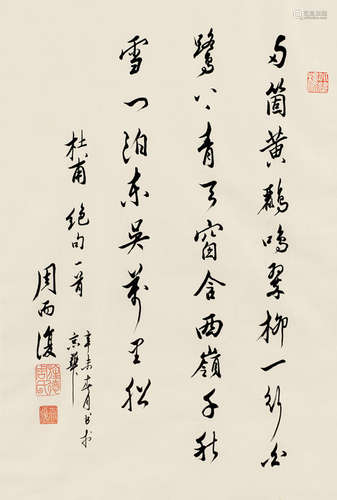 两箇黄鸝鳴翠柳一行白
鷺上青天窗含西嶺千秋
雪门泊东吴萬里船
杜甫絕句一首
辛未春月书於
京華
周而復